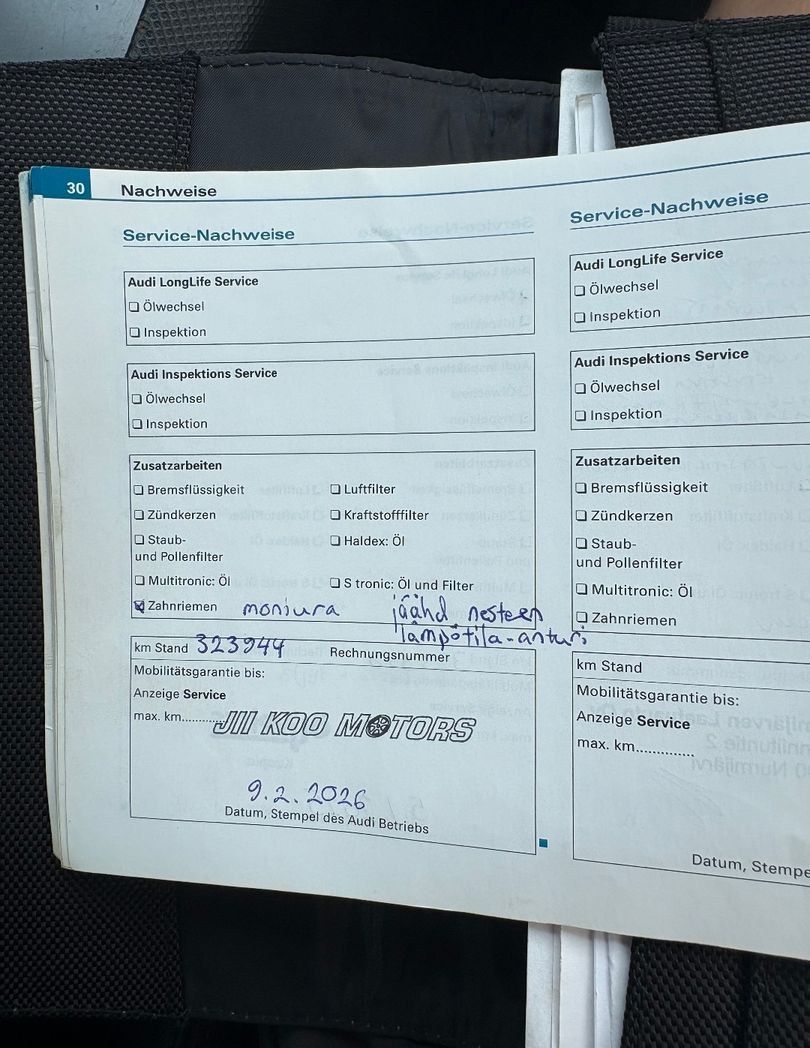 30 Nachweise
Service-Nachweise
Audi LongLife Service
Ölwechsel
Inspektion
Audi Inspektions Service
Ölwechsel
Inspektion
Zusatzarbeiten
Bremsflüssigkeit
Luftfilter
Zündkerzen
Kraftstofffilter
Staub-
und Pollenfilter
Haldex: Öl
Multitronic: Öl
S tronic: Öl und Filter
Zahnriemen moniura jäähd. nesteen
lämpötila-anturi
km Stand 323944 Rechnungsnummer
Mobilitätsgarantie bis:
Anzeige Service
max. km.......... JII KOO MOTORS
9.2.2026
Datum, Stempel des Audi Betriebs
Service-Nachweise
Audi LongLife Service
Ölwechsel
Inspektion
Audi Inspektions Service
Ölwechsel
Inspektion
Zusatzarbeiten
Bremsflüssigkeit
Zündkerzen
Staub-
und Pollenfilter
Multitronic: Öl
Zahnriemen
km Stand
Mobilitätsgarantie bis:
Anzeige Service
max. km..............
Datum, Stempe